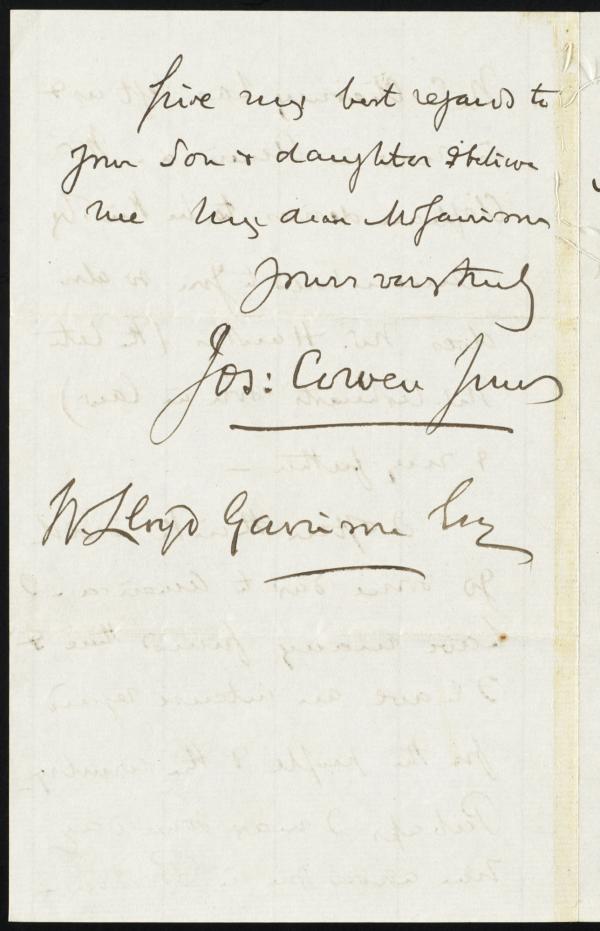 Give my best regards to
your Son & daughter & believe
me My dear Mr Garrison
Yours very truly
Jos: Cowen Junr
W. Lloyd Garrison Esq